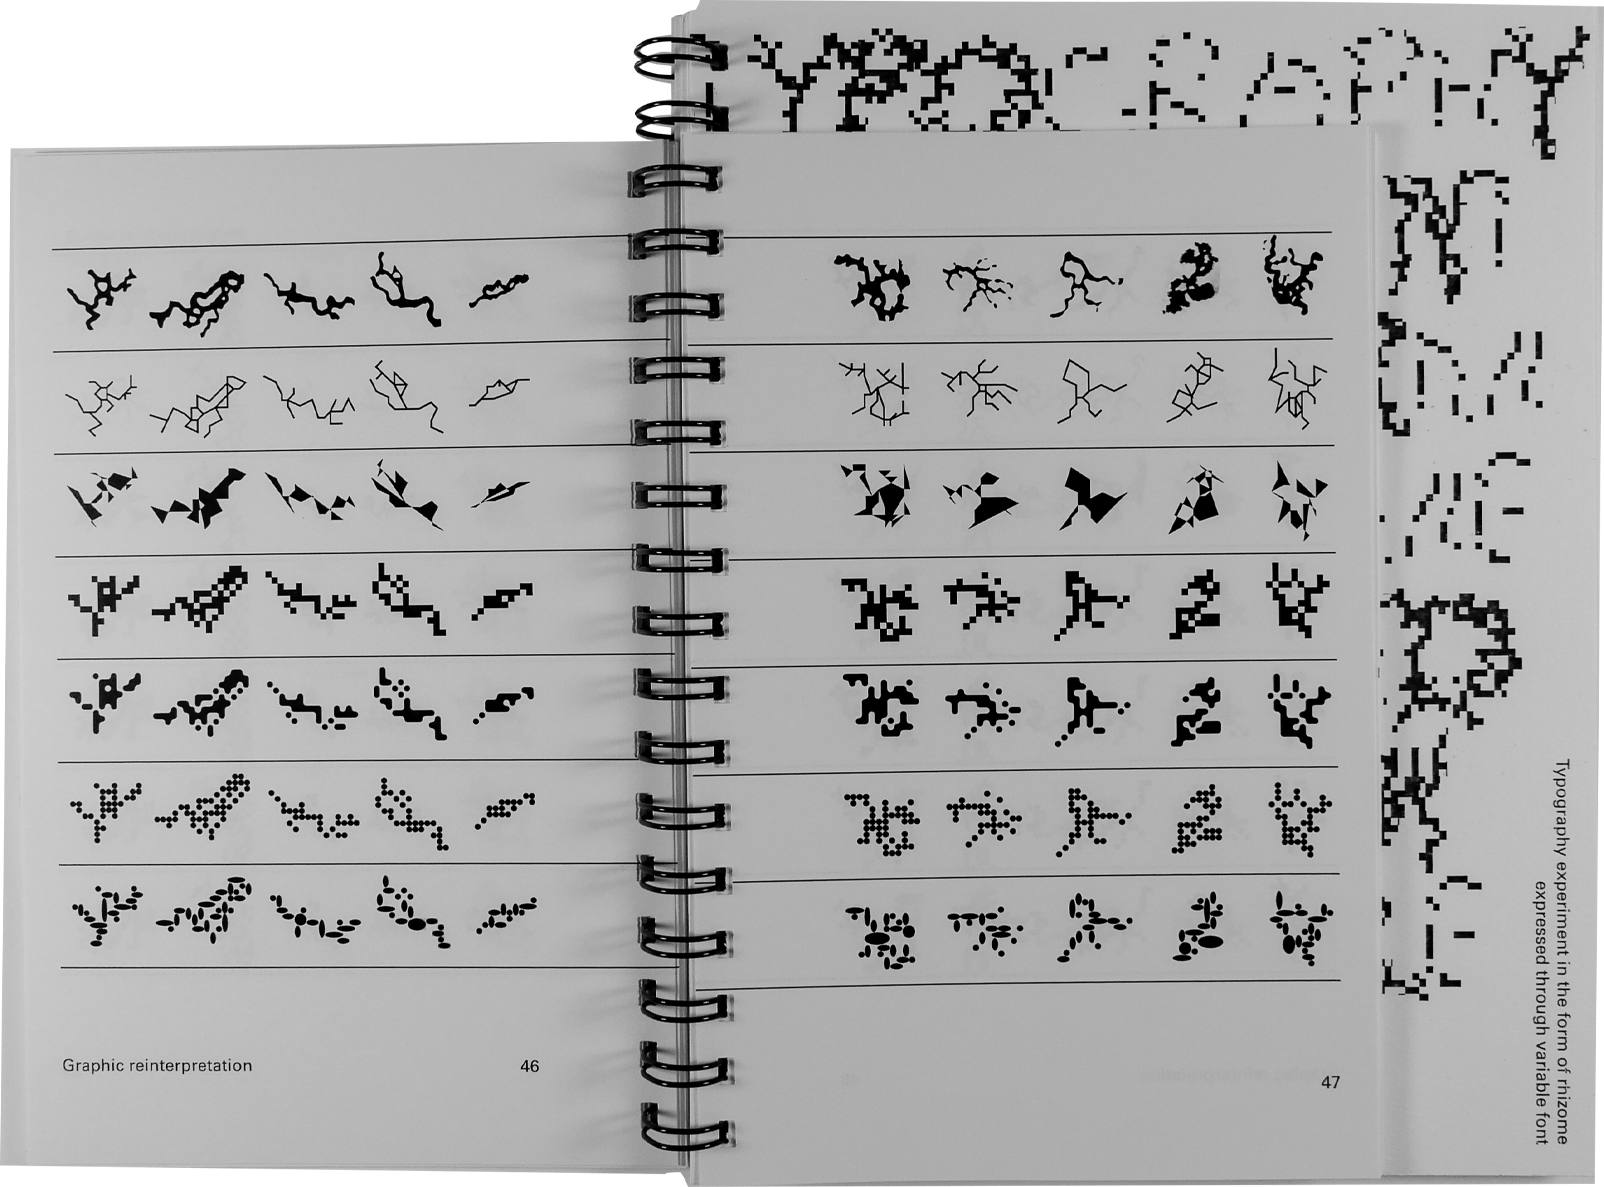 YPOGRAPHY
Graphic reinterpretation
46
47
Typography experiment in the form of rhizome
expressed through variable font